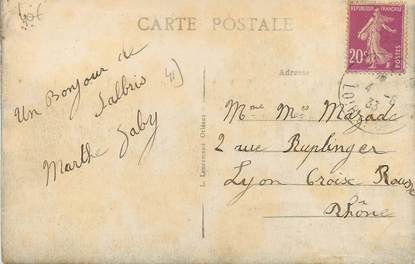 CARTE POSTALE
RÉPUBLIQUE FRANÇAISE
20c
POSTES
Un Bonjour de
Salbris 41)
Marthe Gaby
L. Lenormand Orléans
Adresse
Mme Mss Mazade
2 rue Ruplinger
Lyon Croix Rousse
Rhône